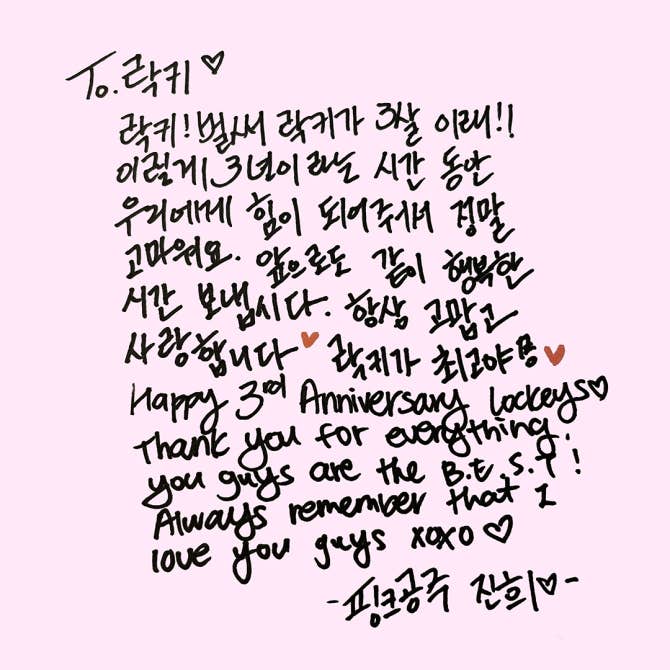 To. 락키 ♡
락키! 벌써 락키가 3살 이래!!
이렇게 3년이라는 시간 동안
우리에게 힘이 되어주셔서 정말
고마워요. 앞으로도 같이 행복한
시간 보냅시다. 항상 고맙고
사랑합니다 ♥ 락키가 최고야 ♥
Happy 3rd Anniversary Lockeys ♡
Thank you for everything.
you guys are the B.E.S.T!
Always remember that I
love you guys xoxo ♡
-핑크공주 진희♡-